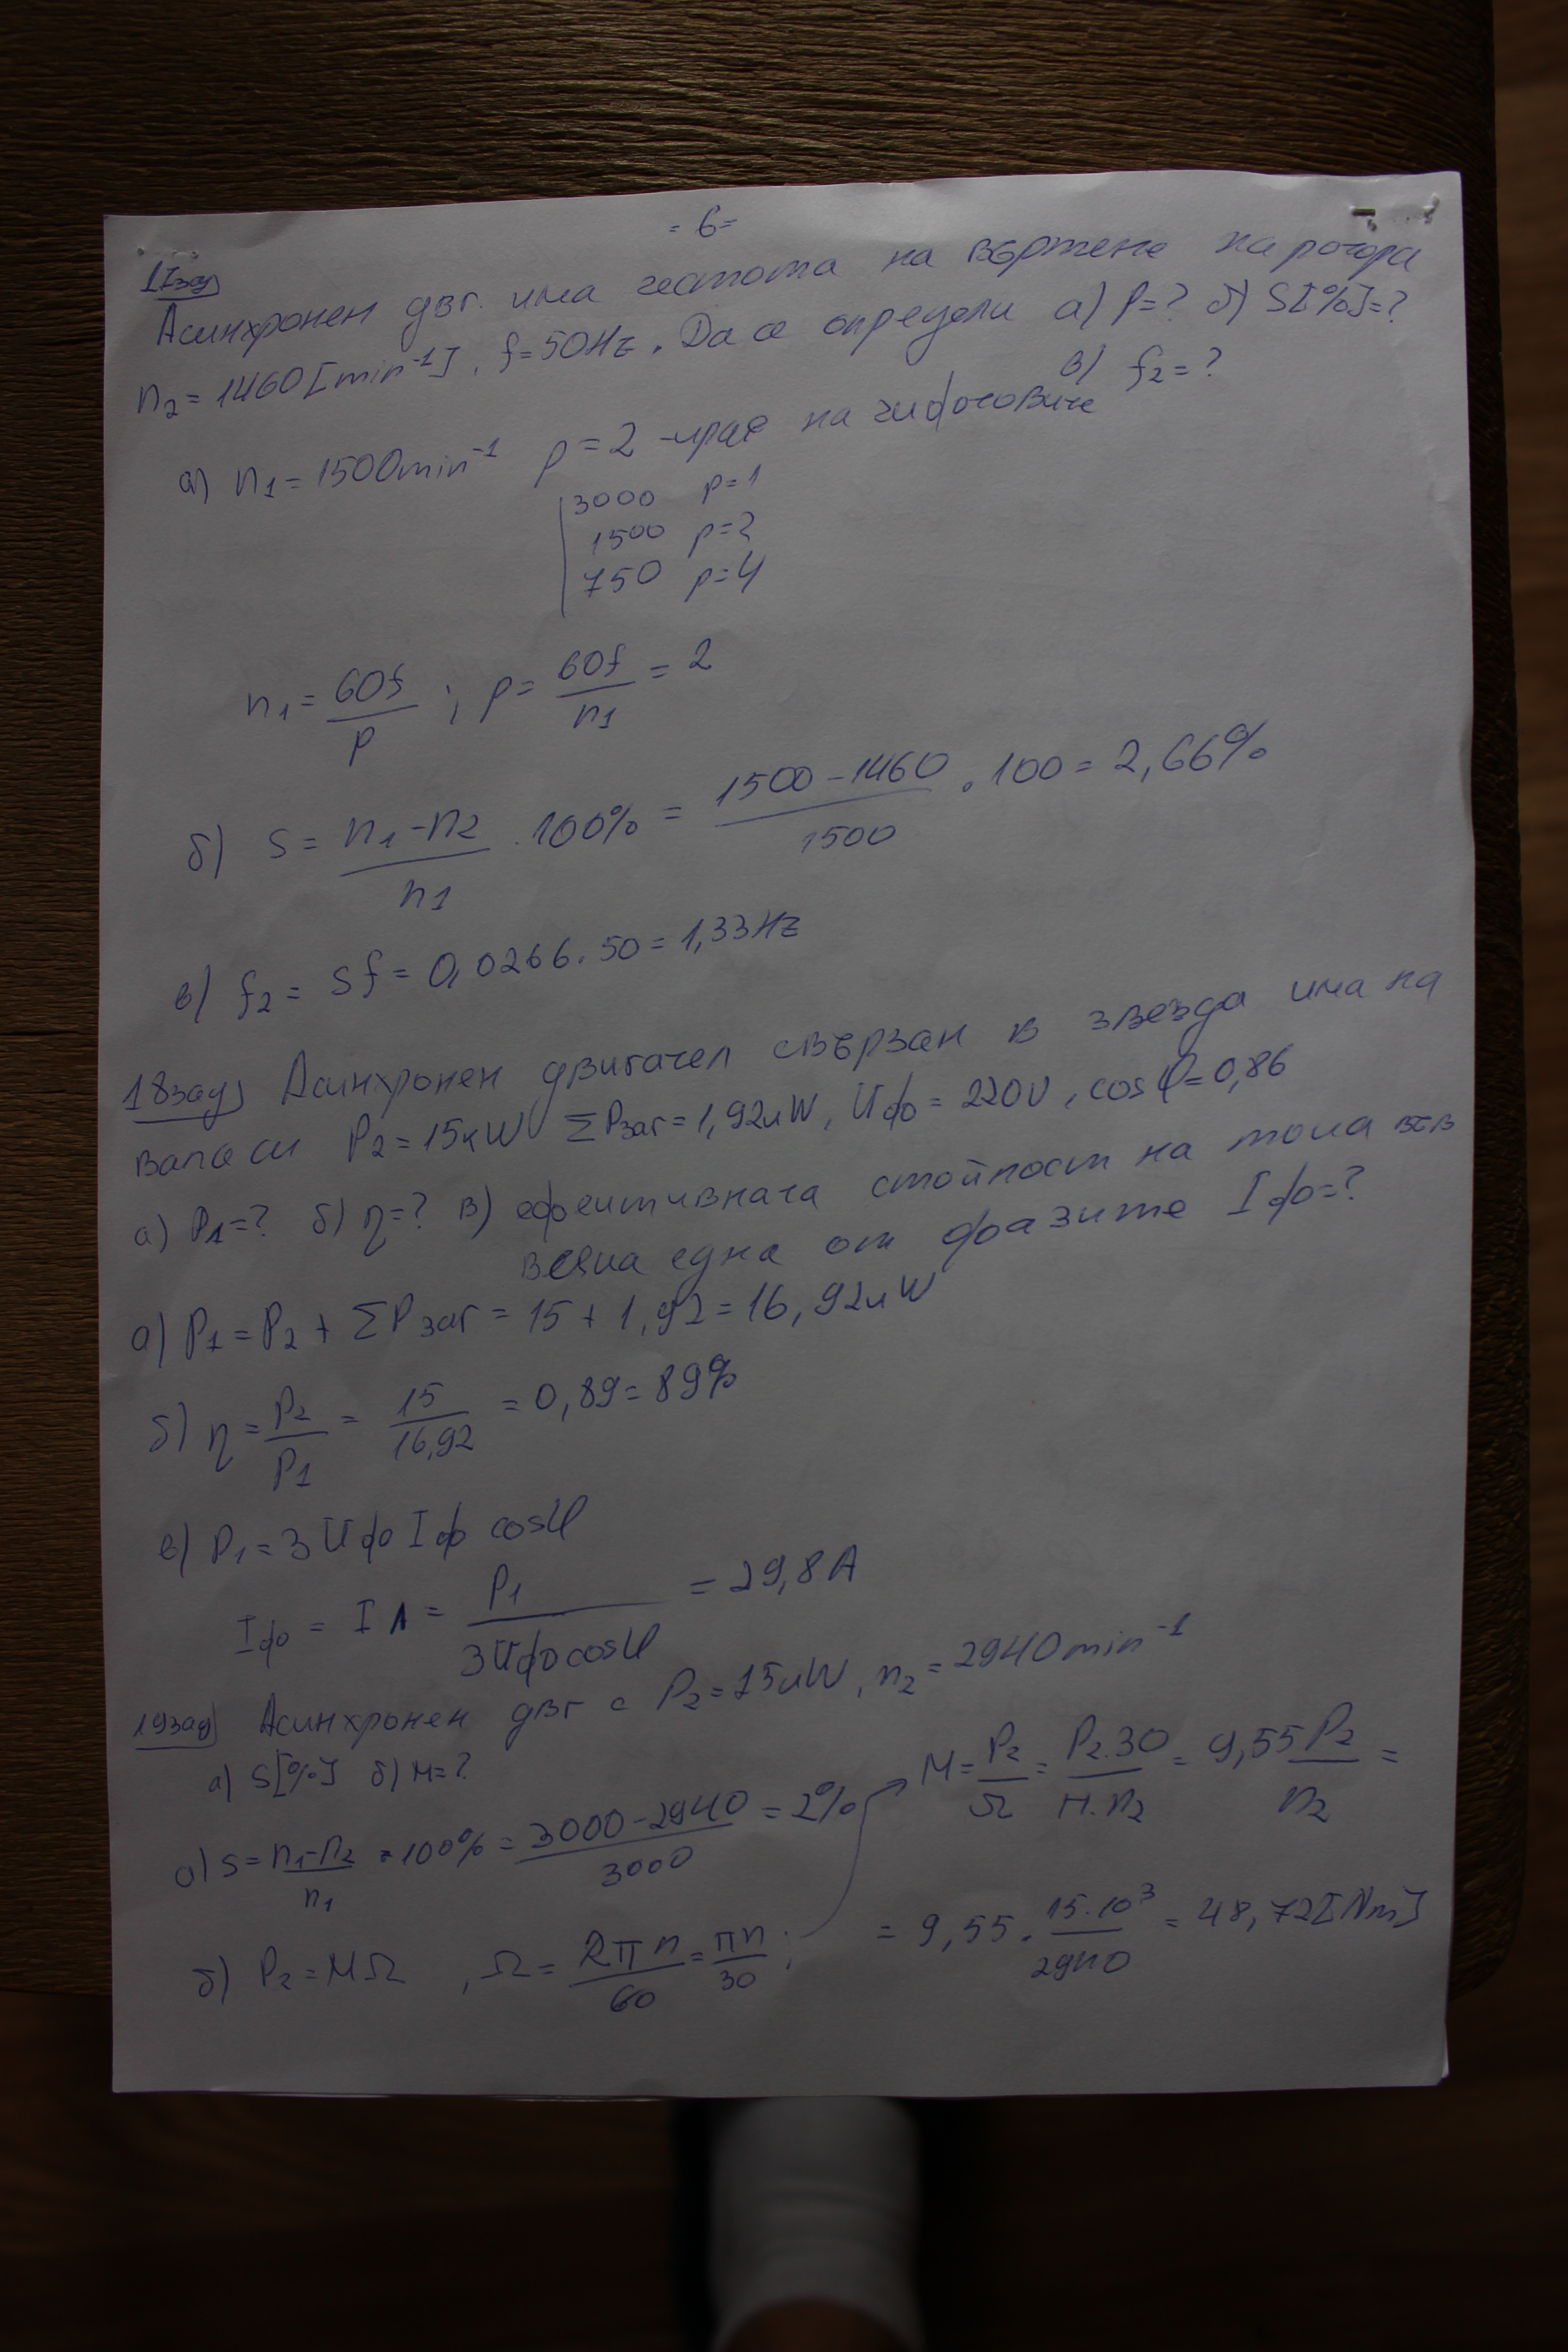 = 6 =
17зад
Асинхронен двг. има честота на въртене на ротора
n₂ = 1460 [min⁻¹], f = 50Hz. Да се определи а) p = ? б) S[%] = ?
в) f₂ = ?
а) n₁ = 1500min⁻¹ p = 2 - край на чифтовите
3000 p=1
1500 p=2
750 p=4
n₁ = 60f/p ; p = 60f/n₁ = 2
б) s = n₁ - n₂/n₁ . 100% = 1500 - 1460/1500 . 100 = 2,66%
в) f₂ = sf = 0,0266 . 50 = 1,33Hz
18зад Асинхронен двигател свързан в звезда има на
вала си P₂ = 15кW ΣPзаг = 1,92кW, Uф = 220V, cosφ = 0,86
а) P₁ = ? б) η = ? в) ефективната стойност на тока във
всяка една от фазите Iф = ?
а) P₁ = P₂ + ΣPзаг = 15 + 1,92 = 16,92кW
б) η = P₂/P₁ = 15/16,92 = 0,89 = 89%
в) P₁ = 3UфIф cosφ
Iф = IЛ = P₁/3Uфcosφ = 29,8A
19зад Асинхронен двг с P₂ = 15кW, n₂ = 2940min⁻¹
а) S[%] б) M = ?
а) s = n₁-n₂/n₁ = 100% = 3000 - 2940/3000 = 2%
M = P₂/Ω = P₂.30/π.n₂ = 9,55 P₂/n₂ =
б) P₂ = MΩ , Ω = 2πn/60 = πn/30 ;
= 9,55 . 15.10³/2940 = 48,72[Nm]